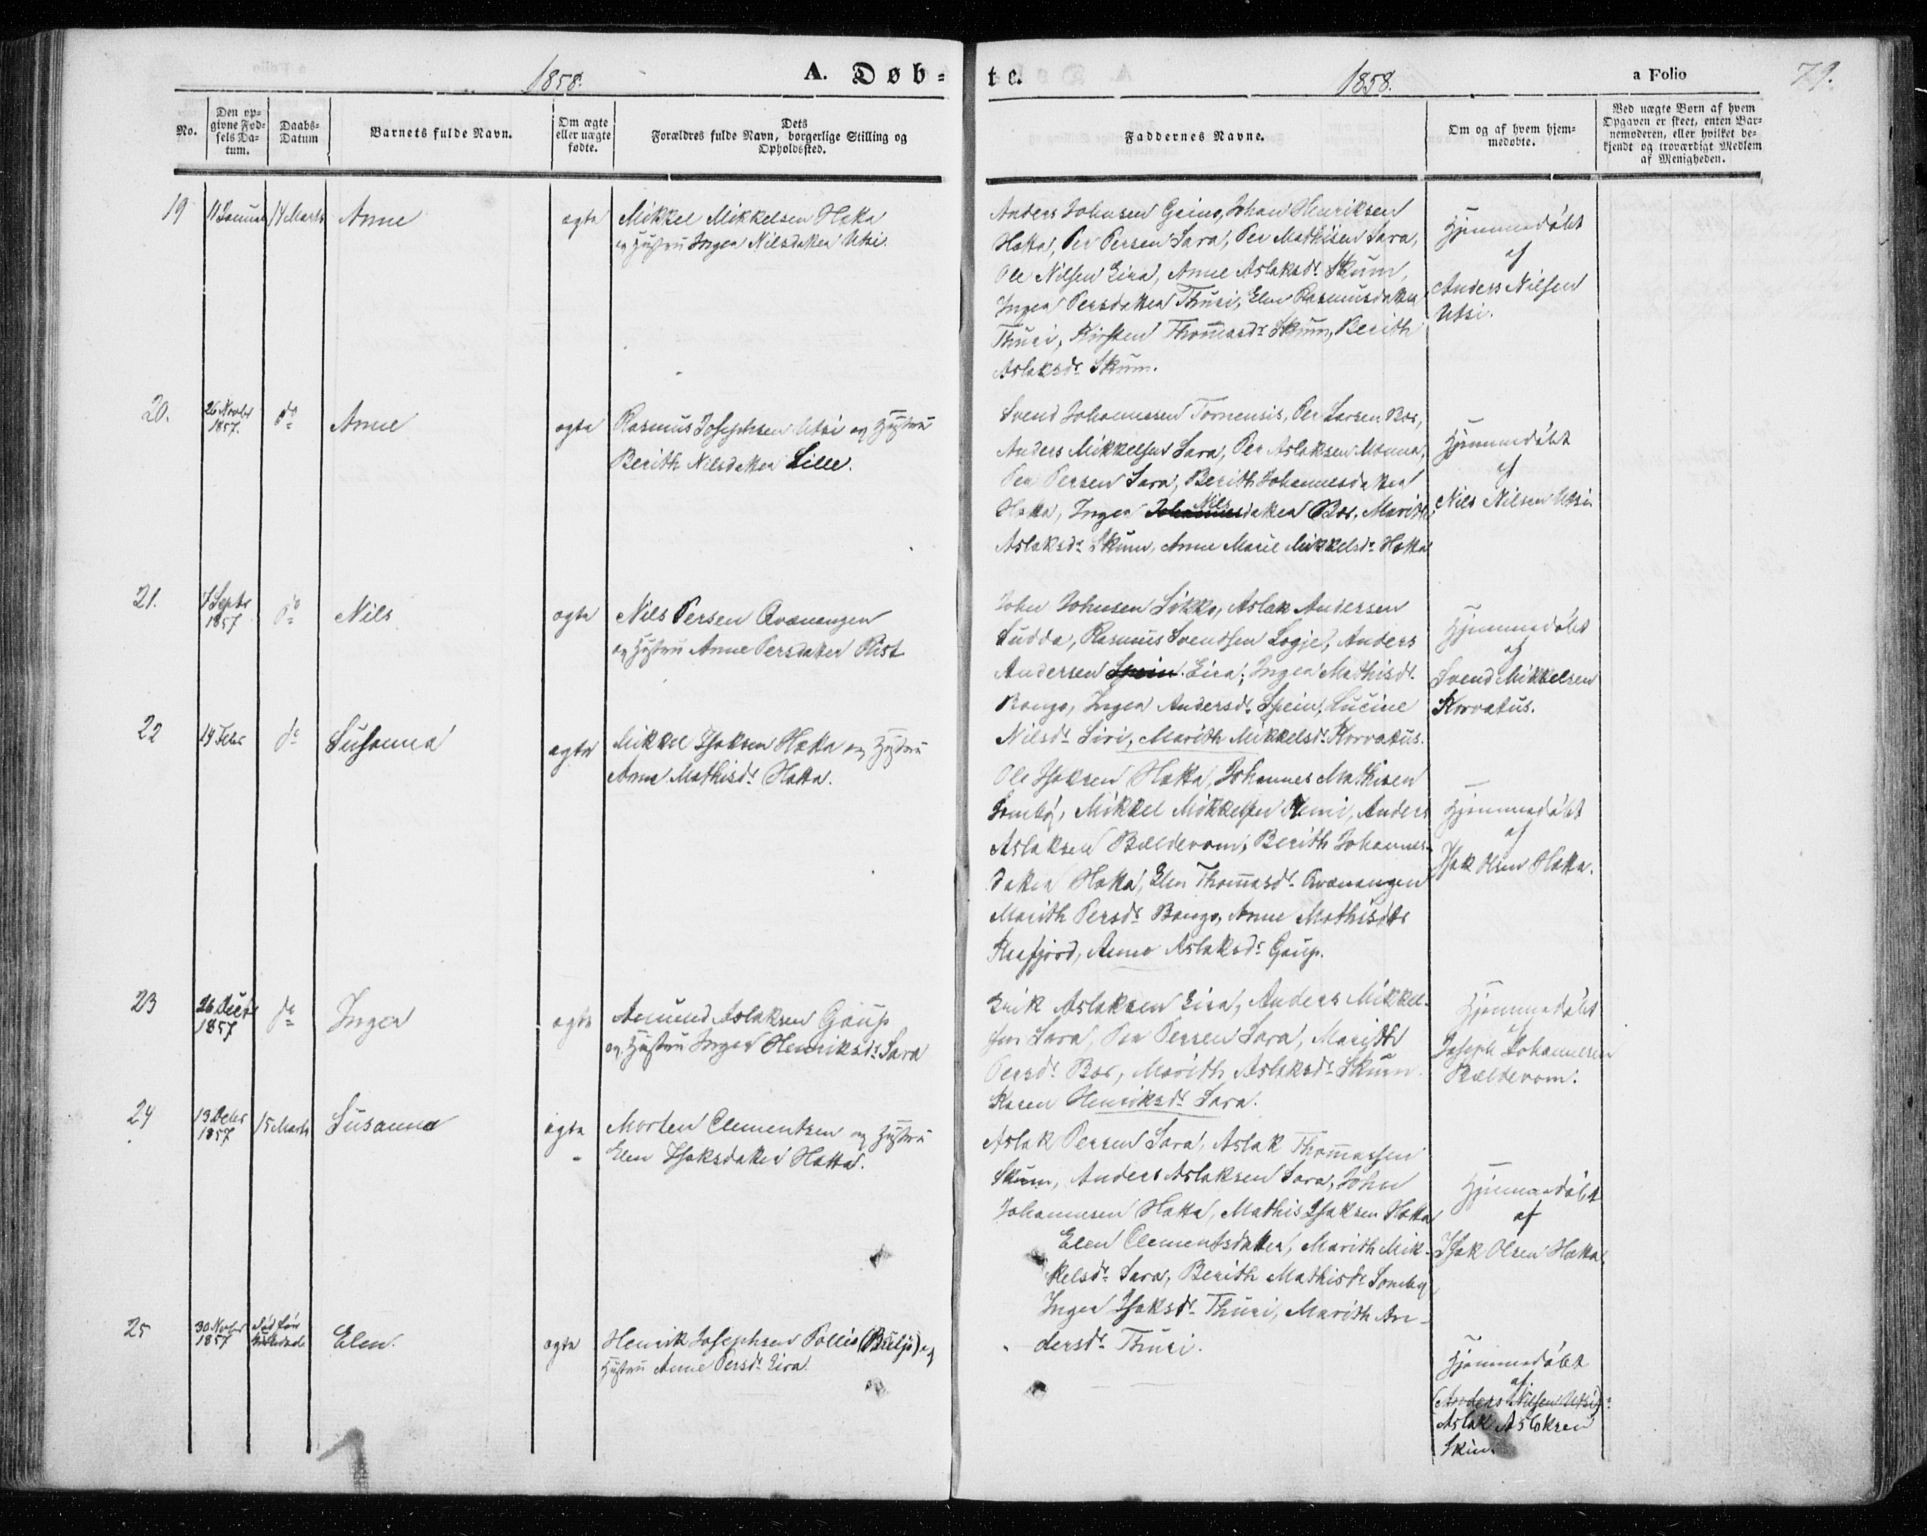 1858. A. Døb=
te. 1858. a Folio 79.
No.
Den op-
givne Fød-
sels Da-
tum.
Daabs-
Datum
Barnets fulde Navn.
Om ægte
eller uægte
fødte.
Dets
Forældres fulde Navn, borgerlige Stilling og
Opholdssted.
Faddernes Navne.
Om og af hvem hjem-
medøbte.
Ved uægte Børn af hvem
Opgaven er skeet, enten Bar-
nemoderen, eller hvilket be-
kjendt og troværdigt Medlem
af Menigheden.
19 11 Januar 14 Marts Anne ægte
Mikkel Mikkelsen Hætta
og Hustru Inger Nilsdatter Utsi.
Anders Johnsen Gaino, Johan Henriksen
Hætta, Per Persen Sara, Per Mathisen Sara,
Ole Nilsen Eira, Anne Aslaksdr. Skum,
Inger Persdatter Thuri, Elen Rasmusdatter
Thuri, Kirsten Thomasdr. Skum, Berith
Aslaksdr. Skum.
Hjemmedøbt
af
Anders Nilsen
Utsi.
20. 26 Novbr
1857. do Anne ægte
Rasmus Josephsen Utsi og Hustru
Berith Nilsdatter Lille.
Svend Johannesen Tornensis, Per Larsen Bær,
Anders Mikkelsen Sara, Per Aslaksen Monna,
Per Persen Sara, Berith Johannesdatter
Hætta, Inger Nilsdatter Bær, Marith
Aslaksdr. Skum, Anne Marie Mikkelsdr. Hætta
Hjemmedøbt
af
Nils Nilsen Utsi
21. Septr
1857 do Nils ægte
Nils Persen Qvænangen
og Hustru Anne Persdatter Rist
John Johnsen Løkko, Aslak Andersen
Sudda, Rasmus Svendsen Logje, Anders
Andersen Spein Eira, Inger Mathisdr.
Bongo, Inger Andersdr. Spein, Lucine
Nilsdr. Siri, Marith Mikkelsdr. Korvatus.
Hjemmedøbt
af
Svend Mikkelsen
Korvatus.
22 14 Febr do Susanna ægte
Mikkel Isaksen Hætta og Hustru
Anne Mathisdr. Hætta.
Ole Isaksen Hætta, Johannes Mathisen
Sombÿ, Mikkel Mikkelsen Kemi, Anders
Aslaksen Bældevom, Berith Johannes-
datter Hætta, Elen Thomasdr. Qvænangen
Marith Persdr. Bongo, Anne Mathisdtr
Kaafjord, Anne Aslaksdr. Gaup.
Hjemmedøbt
af
Isak Olsen Hætta.
23 26 Decbr
1857 do Inger ægte
Amund Aslaksen Gaup
og Hustru Inger Henriksdr. Sara
Erik Aslaksen Eira, Anders Mikkel-
sen Sara, Per Persen Sara, Marith
Persdr. Bær, Marith Aslaksdr. Skum.
Karen Henriksdr. Sara.
Hjemmedøbt
af
Joseph Johannesen
Bældevom.
24 13 Decbr
1857 15 Marts Susanna ægte
Morten Clementsen og Hustru
Elen Isaksdatter Hætta.
Aslak Persen Sara, Aslak Thomassen
Skum, Anders Aslaksen Sara, John
Johannesen Hætta, Mathis Isaksen Hætta
Elen Clementsdatter, Marith Mik-
kelsdr. Sara, Berith Mathisdr. Somby
Inger Isaksdr. Thuri, Marith An-
dersdr. Thuri.
Hjemmedøbt
af
Isak Olsen Hætta.
25 30 Novbr
1857 Død før Elen. ægte
Henrik Josephsen Pollio (Buljo) og
Hustru Anne Persdr. Eira.
Hjemmedøbt
af
(Anders Nilsen Utsi)
Aslak Aslaksen
Skum.